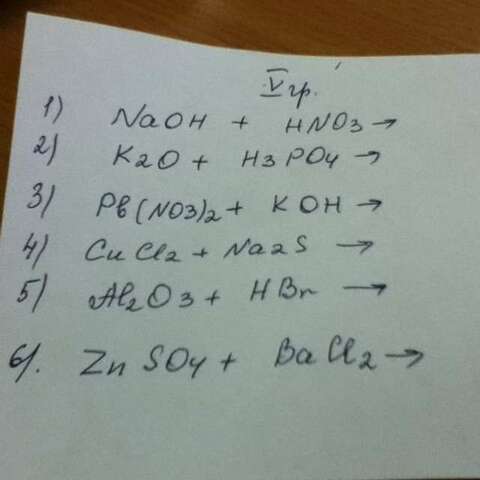 V гр.
1) NaOH + HNO3 →
2) K2O + H3PO4 →
3) Pb(NO3)2 + KOH →
4) CuCl2 + Na2S →
5) Al2O3 + HBr →
6). ZnSO4 + BaCl2 →